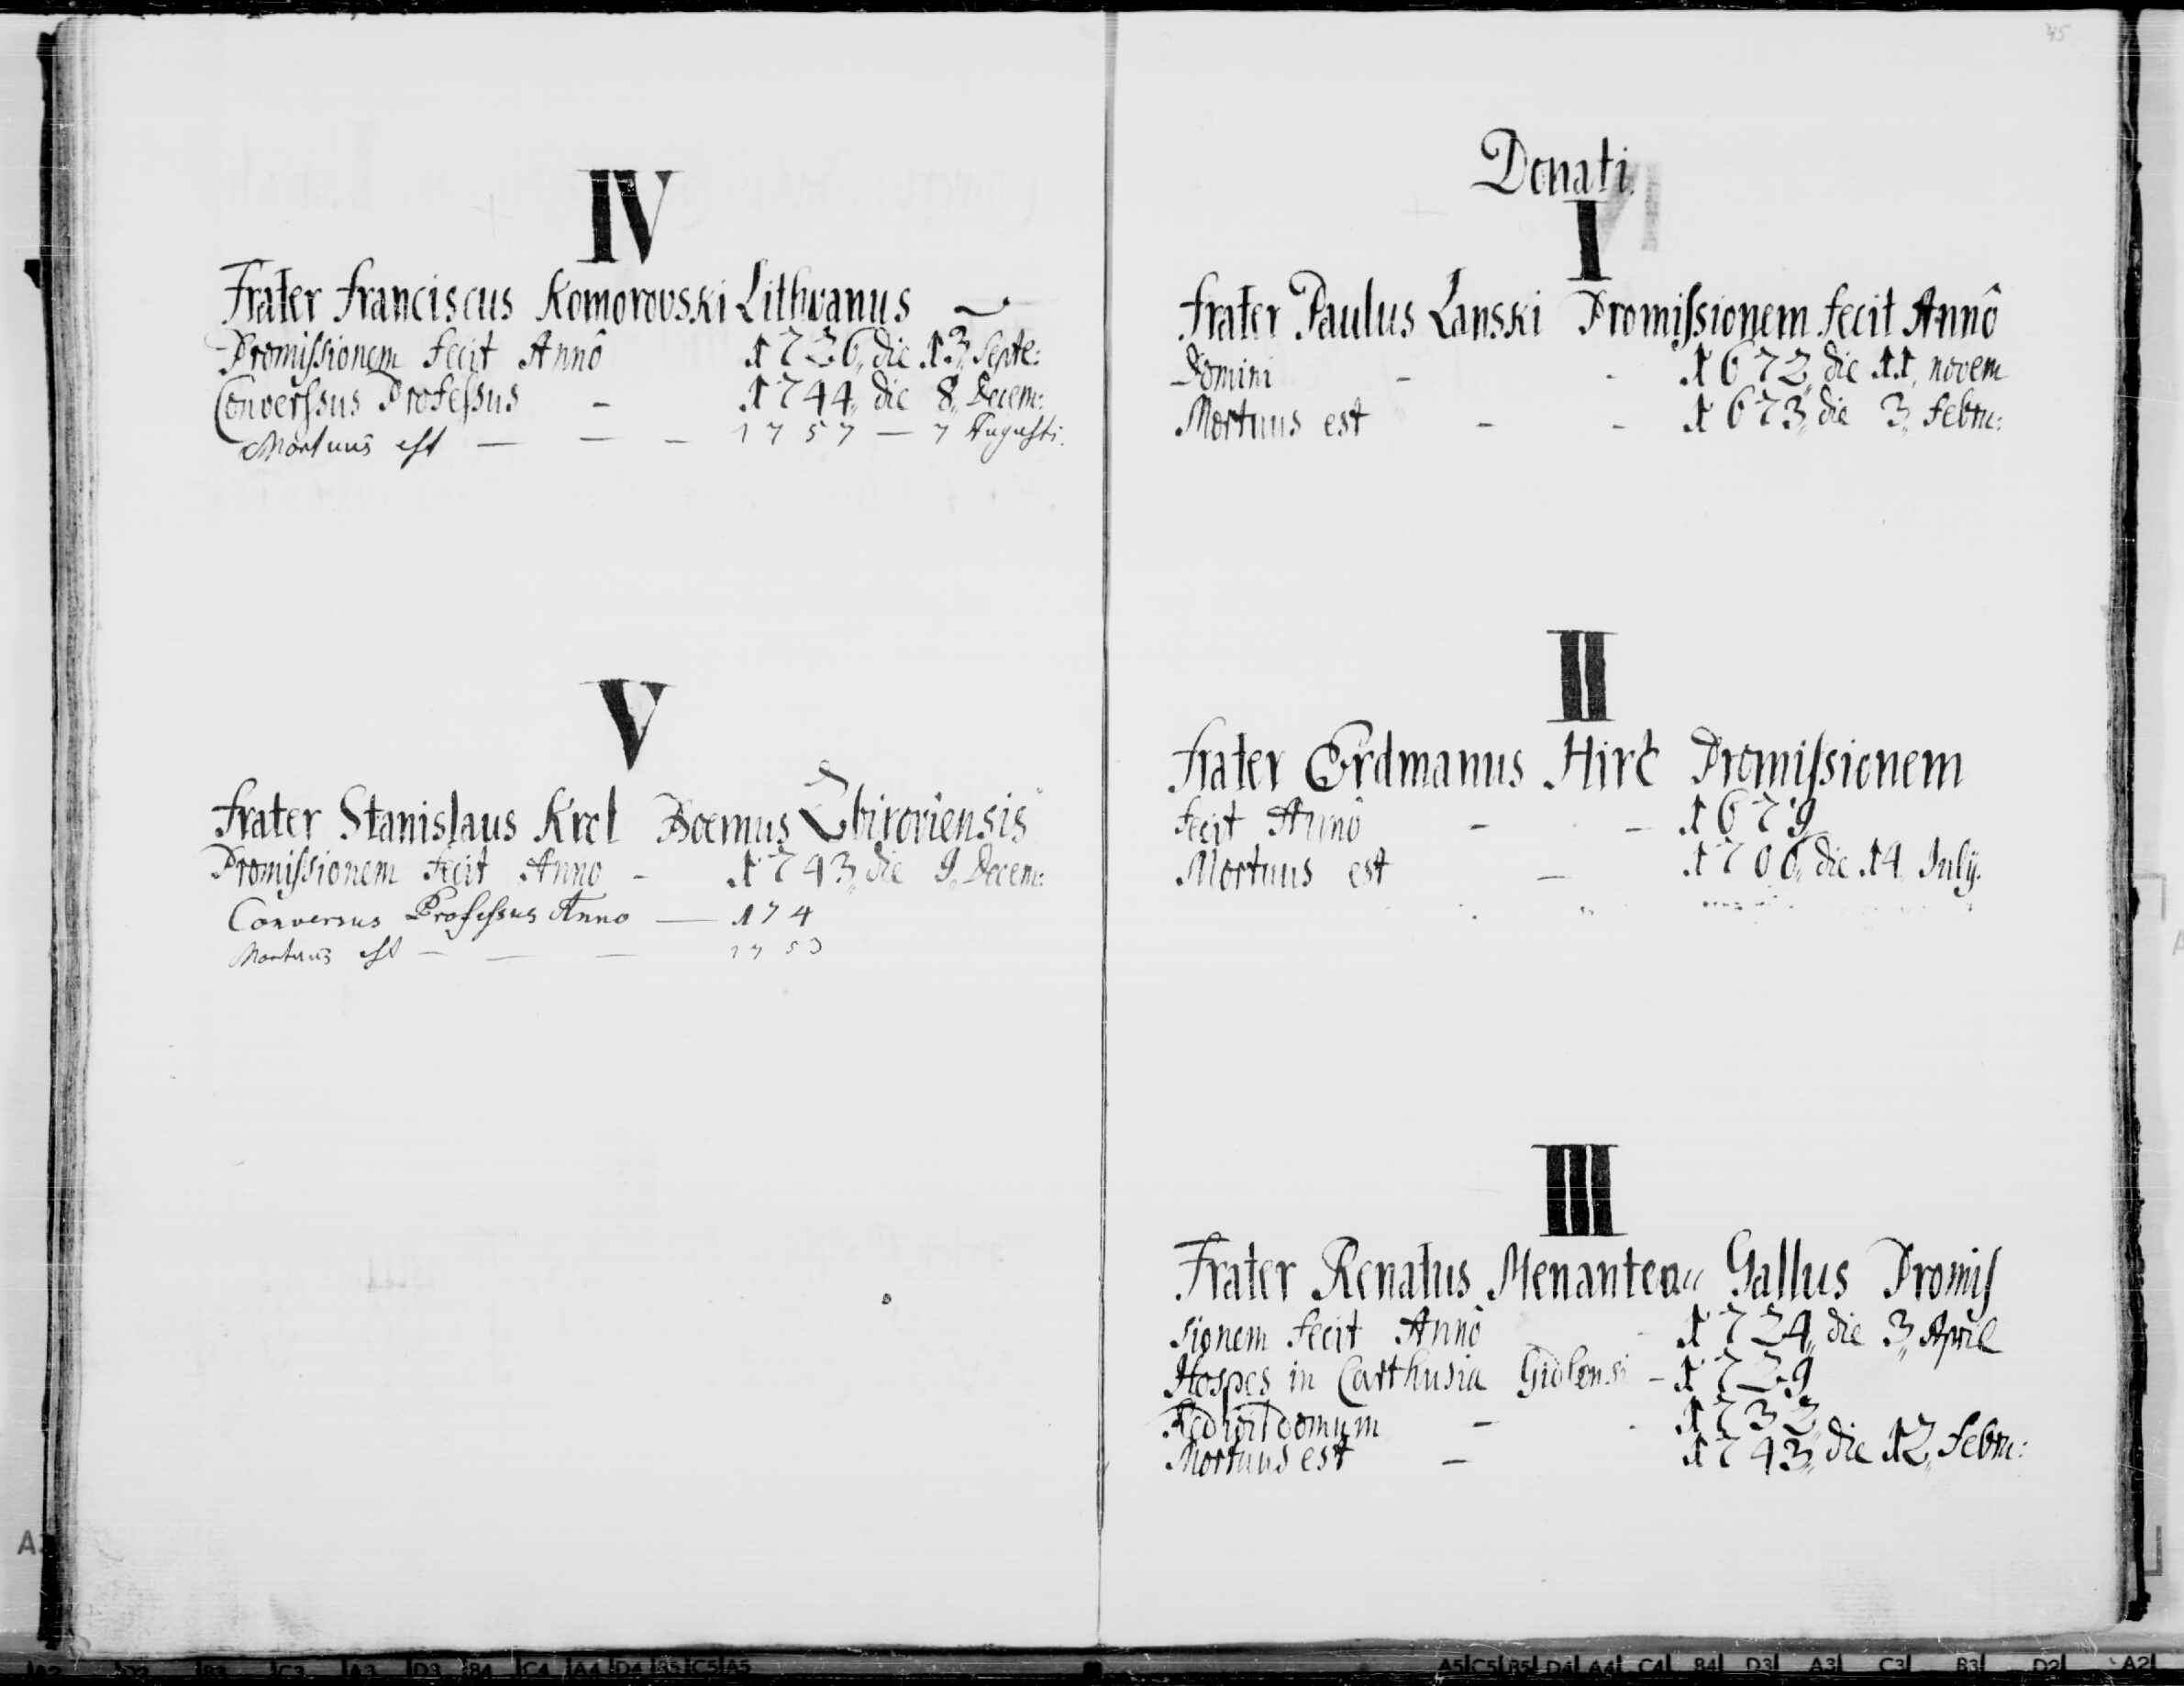 IV
Frater Franciscus Komorovski Lithvanus
Promissionem fecit Annô 1726, die 13, Septe:
Converssus Professus - 1744, die 8, Decem:
Mortuus est - - - 1757 - 7 Augusti.
V
Frater Stanislaus Krol Boemus Zbiroviensis
Promissionem fecit Anno - 1743, die 9, Decem:
Conversus Professus Anno - 174
Mortuus est - - - 1753
45
Donati
I
Frater Paulus Lanski Promissionem fecit Annô
Domini - - 1672, die 11, novem
Mortuus est - - 1673, die 3, Febru:
II
Frater Erdmanus Hirt Promissionem
fecit Annô - - 1679
Mortuus est - 1706, die 14 July.
III
Frater Renatus Menanteau Gallus Promis
sionem fecit Annô - 1724, die 3, April
Hospes in Carthusia Gidlensi - 1729
Redivit domum - - 1732,
Mortuus est - 1743, die 12, Febru:
A5 C5 B5 D4 A4 C4 B4 D3 A3 C3 B3 D2 A2